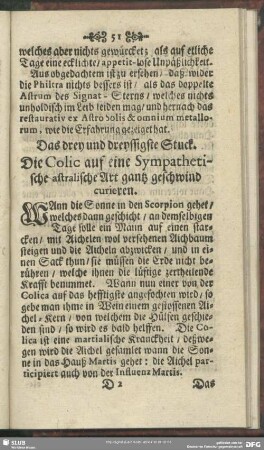 51
welches aber nichts gewürcket; als auf etliche
Tage eine ecklichte / appetit-lose Unpäßlichkeit.
Aus obgedachtem ist zu ersehen / daß wider
die Philtra nichts bessers ist / als das doppelte
Astrum des Signat-Sterns / welches nichts
unholdisch im Leib leiden mag / und hernach das
restaurativ ex Astro Solis & omnium metallo-
rum, wie die Erfahrung gezeiget hat.
Das drey und dreyssigste Stuck.
Die Colic auf eine Sympatheti-
sche astralische Art gantz geschwind
curieren.
WAnn die Sonne in den Scorpion gehet /
welches dann geschicht / an demselbigen
Tage solle ein Mann auf einen star-
cken / mit Aichelen wol versehenen Aichbaum
steigen und die Aicheln abzwicken / und in ei-
nen Sack thun / sie müssen die Erde nicht be-
rühren / welche ihnen die lüftige zertheilende
Krafft benimmet. Wann nun einer von der
Colica auf das hefftigste angefochten wird / so
gebe man ihme in Wein einem gestossenen Ai-
chel-Kern / von welchem die Hülsen geschie-
den sind / so wird es bald helffen. Die Co-
lica ist eine martialische Kranckheit / deßwe-
gen wird die Aichel gesamlet wann die Son-
ne in das Hauß Martis gehet: die Aichel par-
ticipiert auch von der Influenz Martis.
D 2 Das
SLUB
DFG